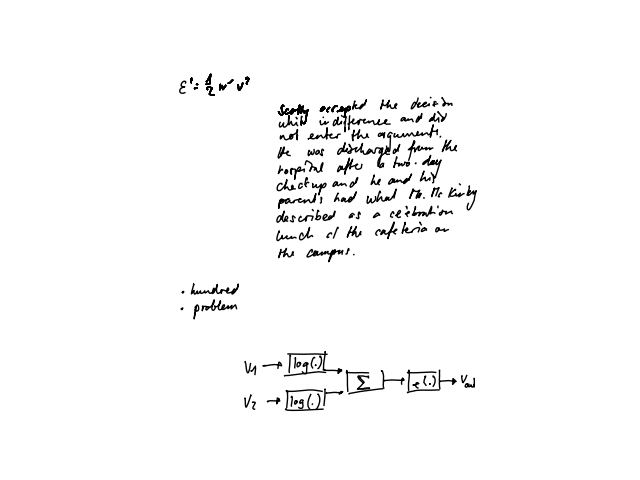 E' = 1/2 m v²
Scotty accepted the decision
whith indifference and did
not enter the arguments.
He was discharged from the
hospital after a two-day
checkup and he and his
parents had what Mr. Mc Kinley
described as a celebration
lunch at the cafeteria on
the campus.
• hundred
• problem
V1 → log(.)
Σ → e(.) → Vout
V2 → log(.)